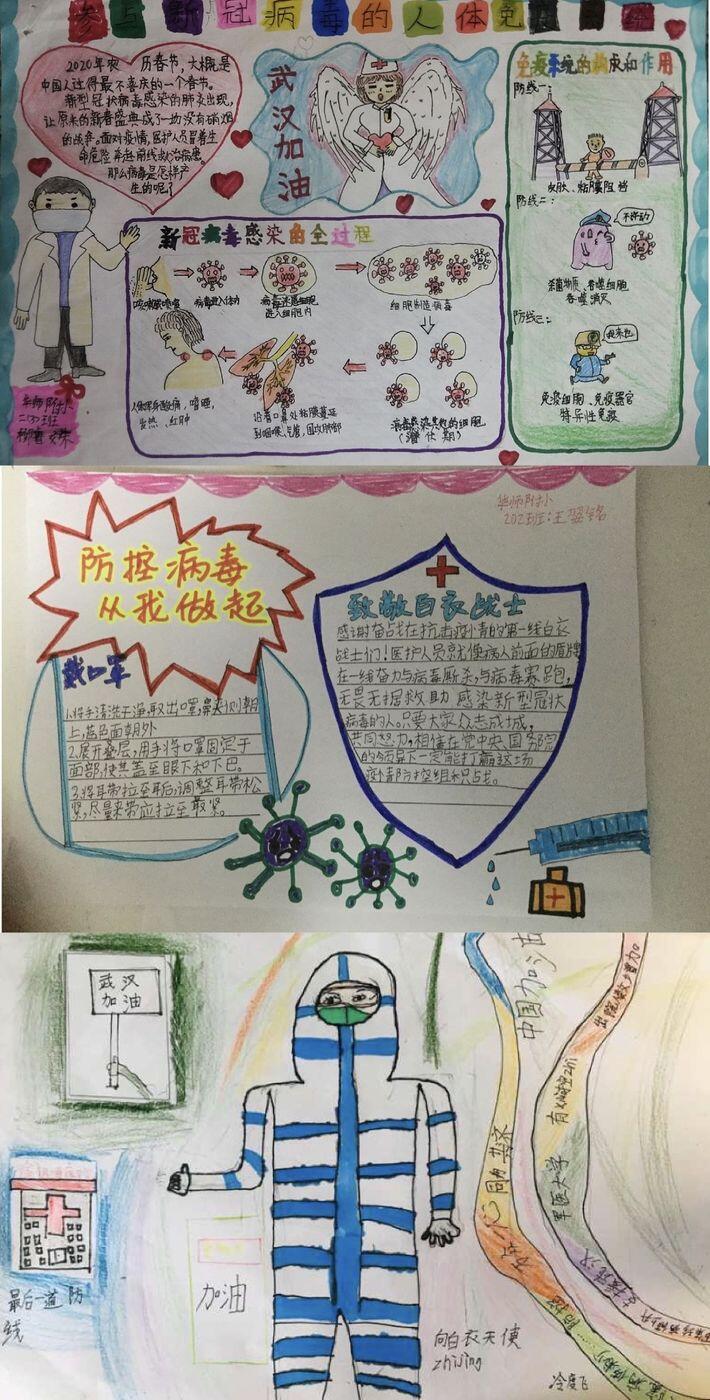 参与新冠病毒的人体免疫系统
2020年农 历春节,大概是
中国人过得最不喜庆的一个春节。
新型冠状病毒感染的肺炎出现,
让原来的新春盛典成了一场没有硝烟
的战争。面对疫情,医护人员冒着生
命危险奔赴前线救治病患。
那么病毒是怎样产
生的呢?
武汉加油
免疫系统的构成和作用
防线一:
皮肤、粘膜阻挡
防线二:
不许动
杀菌物质、吞噬细胞
吞噬消灭
防线三:
我来也
免疫细胞、免疫器官
特异性免疫
新冠病毒感染的全过程
咳嗽或喷嚏
病毒进入体内
病毒
进入细胞内
细胞制造病毒
病毒感染其他的细胞
(潜伏期)
沿着口鼻处粘膜蔓延
到咽喉、气管,围攻肺部
发热、红肿
华师附小
华师附小
202班:王
防控病毒
从我做起
戴口罩
1.将手清洗干净,取出口罩,鼻夹侧朝
上,蓝色面朝外
2.展开叠层,用手将口罩固定于
面部,使其盖至眼下和下巴。
3.将耳带拉至耳后,调整耳带松
紧,尽量来带应拉至最紧。
致敬白衣战士
感谢奋战在抗击疫情的第一线白衣
战士们!医护人员就像病人前面的盾牌
在一线奋力与病毒厮杀,与病毒赛跑,
无畏无据救助感染新型冠状
病毒的人。只要大家众志成城,
共同努力,相信在党中央、国务院
的领导下一定能打赢这场
疫情防控组织战。
武汉
加油
最后一道防
线
加油
向白衣天使
zhijing
中国加油
同舟共济
军医大学
支援武汉
冷度飞